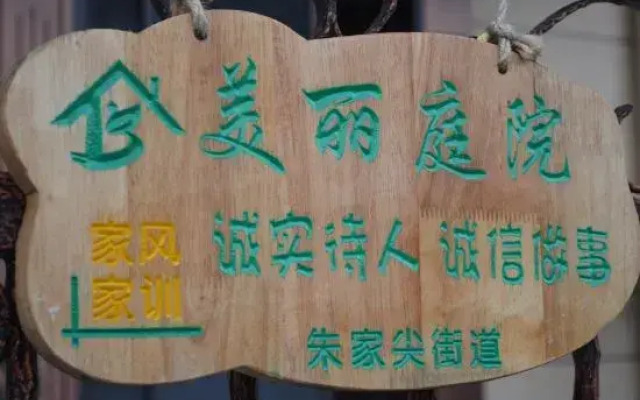 美丽庭院
家风
家训
诚实待人 诚信做事
朱家尖街道